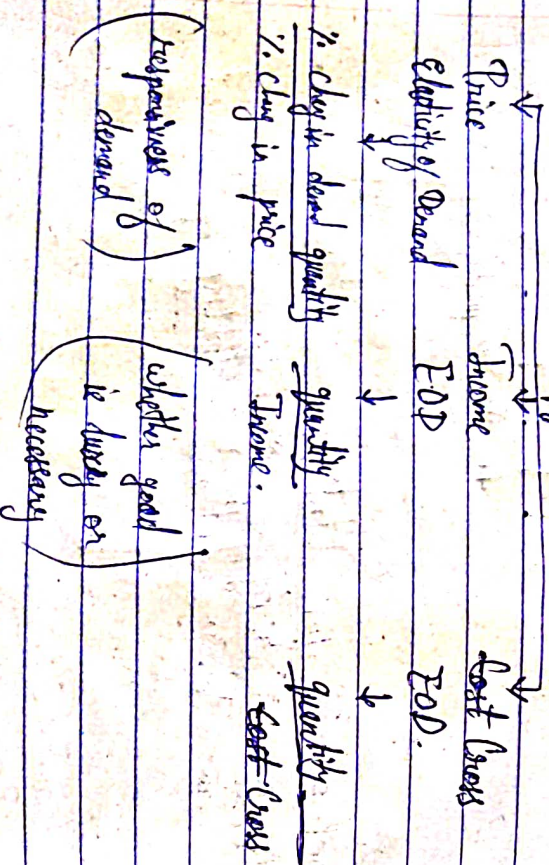 Price
Elasticity of Demand
% chag in demad quantity
% chag in price
(responsiveness of
demand)
Income
EOD
quantity
Income.
(whether good
is luxury or
necessary)
Cost Cross
EOD.
quantity
Cost Cross